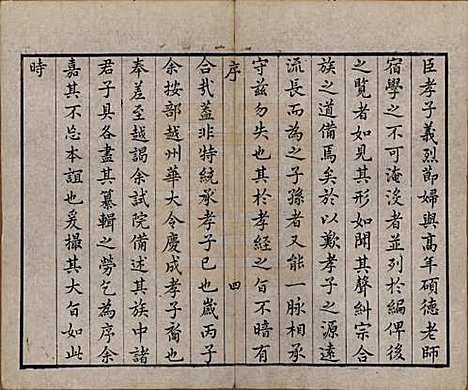 臣孝子義烈節婦與高年碩德老師
宿學之不可淹沒者並列於編俾後
之覽者如見其形如聞其聲糾宗合
族之道備焉矣於以歎孝子之源遠
流長而為之子孫者又能一脈相承
守茲勿失也其於孝經之旨不暗有
序 四
合哉蓋非特統承孝子已也歲丙子
余按部越州華大令慶成孝子裔也
奉差至越謁余試院備述其族中諸
君子具各盡其纂輯之勞乞為序余
嘉其不忘本誼也爰撮其大旨如此
時